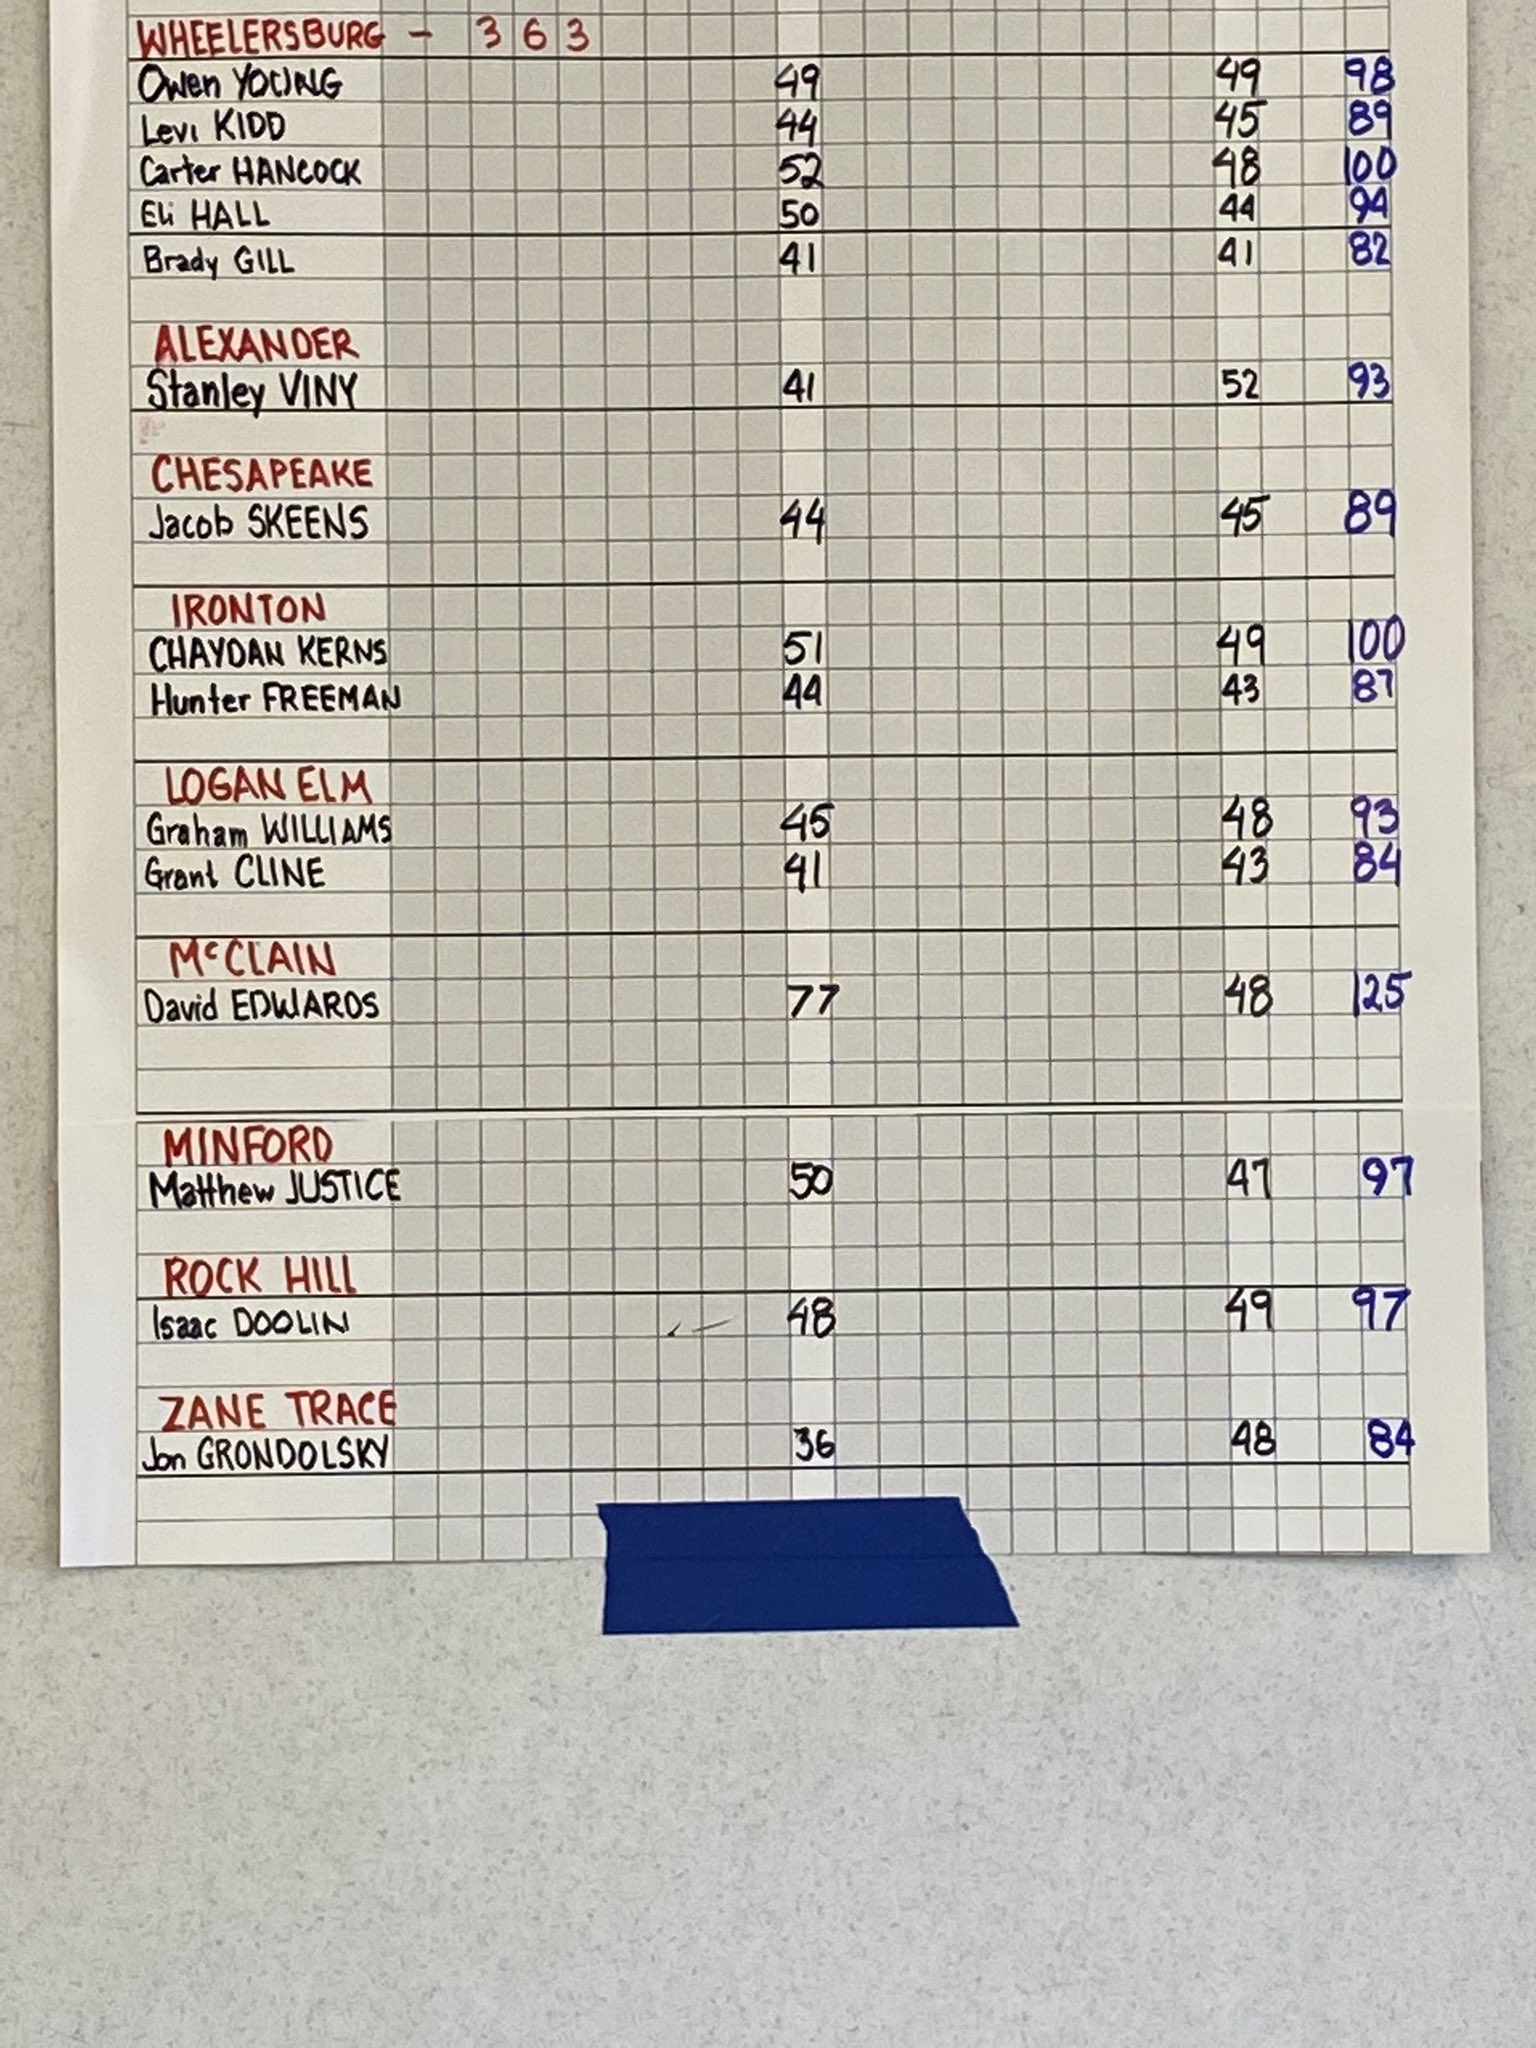 WHEELERSBURG - 363
Owen YOUNG 49 49 98
Levi KIDD 44 45 89
Carter HANCOCK 52 48 100
Eli HALL 50 44 94
Brady GILL 41 41 82
ALEXANDER
Stanley VINY 41 52 93
CHESAPEAKE
Jacob SKEENS 44 45 89
IRONTON
CHAYDAN KERNS 51 49 100
Hunter FREEMAN 44 43 87
LOGAN ELM
Graham WILLIAMS 45 48 93
Grant CLINE 41 43 84
McCLAIN
David EDWARDS 77 48 125
MINFORD
Matthew JUSTICE 50 47 97
ROCK HILL
Isaac DOOLIN 48 49 97
ZANE TRACE
Jon GRONDOLSKY 36 48 84